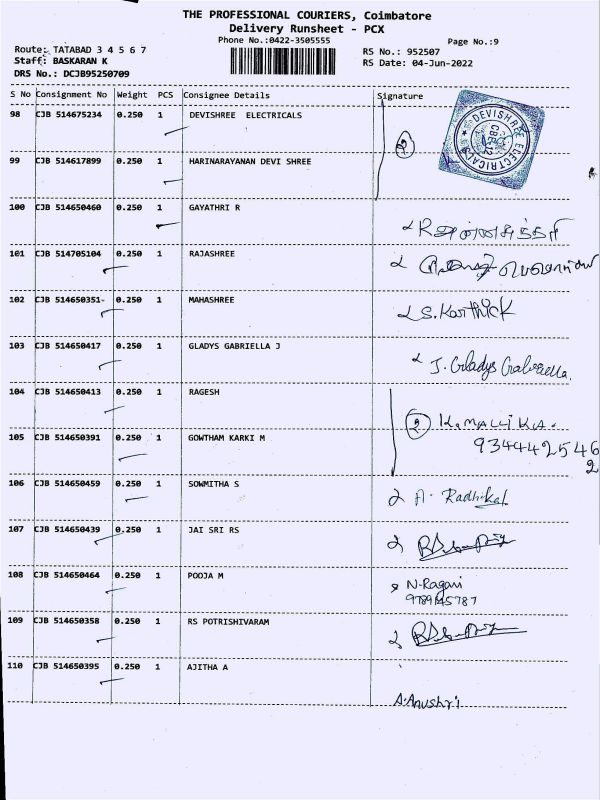 THE PROFESSIONAL COURIERS, Coimbatore
Delivery Runsheet - PCX
Phone No.:0422-3505555
Page No.:9
Route: TATABAD 3 4 5 6 7
RS No.: 952507
Staff: BASKARAN K
RS Date: 04-Jun-2022
DRS No.: DCJB95250709
S No Consignment No Weight PCS Consignee Details Signature
98 CJB 514675234 0.250 1 DEVISHREE ELECTRICALS
DEVISHREE ELECTRICALS
CBE-12
2
99 CJB 514617899 0.250 1 HARINARAYANAN DEVI SHREE
100 CJB 514650460 0.250 1 GAYATHRI R
101 CJB 514705104 0.250 1 RAJASHREE
102 CJB 514650351- 0.250 1 MAHASHREE S. Karthick
103 CJB 514650417 0.250 1 GLADYS GABRIELLA J J. Gladys Gabriella.
104 CJB 514650413 0.250 1 RAGESH
2 K. MALLIKA.
9344425462
105 CJB 514650391 0.250 1 GOWTHAM KARKI M
106 CJB 514650459 0.250 1 SOWMITHA S A. Radhika
107 CJB 514650439 0.250 1 JAI SRI RS
108 CJB 514650464 0.250 1 POOJA M N. Ragavi
109 CJB 514650358 0.250 1 RS POTRISHIVARAM
110 CJB 514650395 0.250 1 AJITHA A
A. Anushri